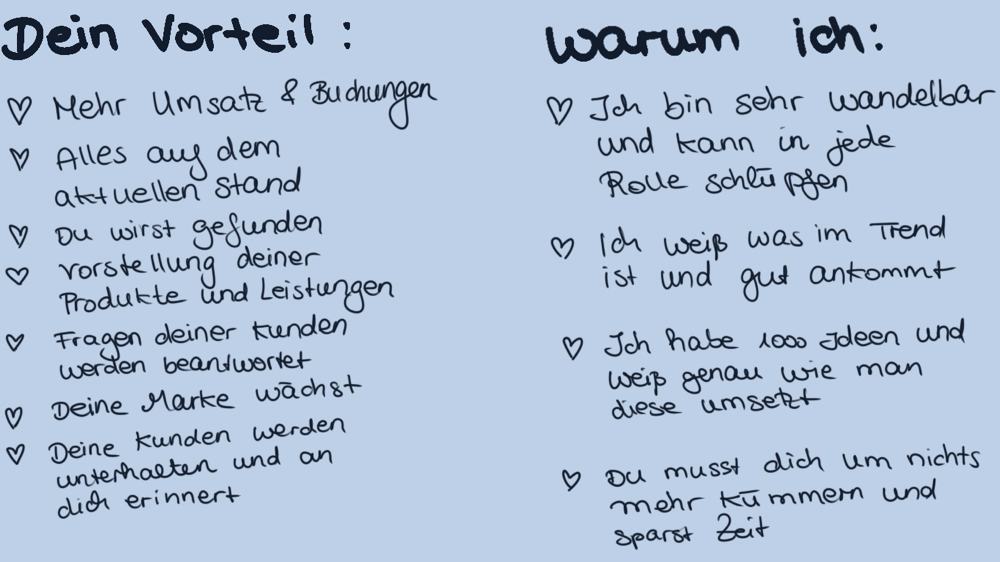 Dein Vorteil :
♡ Mehr Umsatz & Buchungen
♡ Alles auf dem
aktuellen Stand
♡ Du wirst gefunden
♡ Vorstellung deiner
Produkte und Leistungen
♡ Fragen deiner Kunden
werden beantwortet
♡ Deine Marke wächst
♡ Deine Kunden werden
unterhalten und an
dich erinnert
Warum ich:
♡ Ich bin sehr wandelbar
und kann in jede
Rolle schlüpfen
♡ Ich weiß was im Trend
ist und gut ankommt
♡ Ich habe 1000 Ideen und
weiß genau wie man
diese umsetzt
♡ Du musst dich um nichts
mehr kümmern und
sparst Zeit